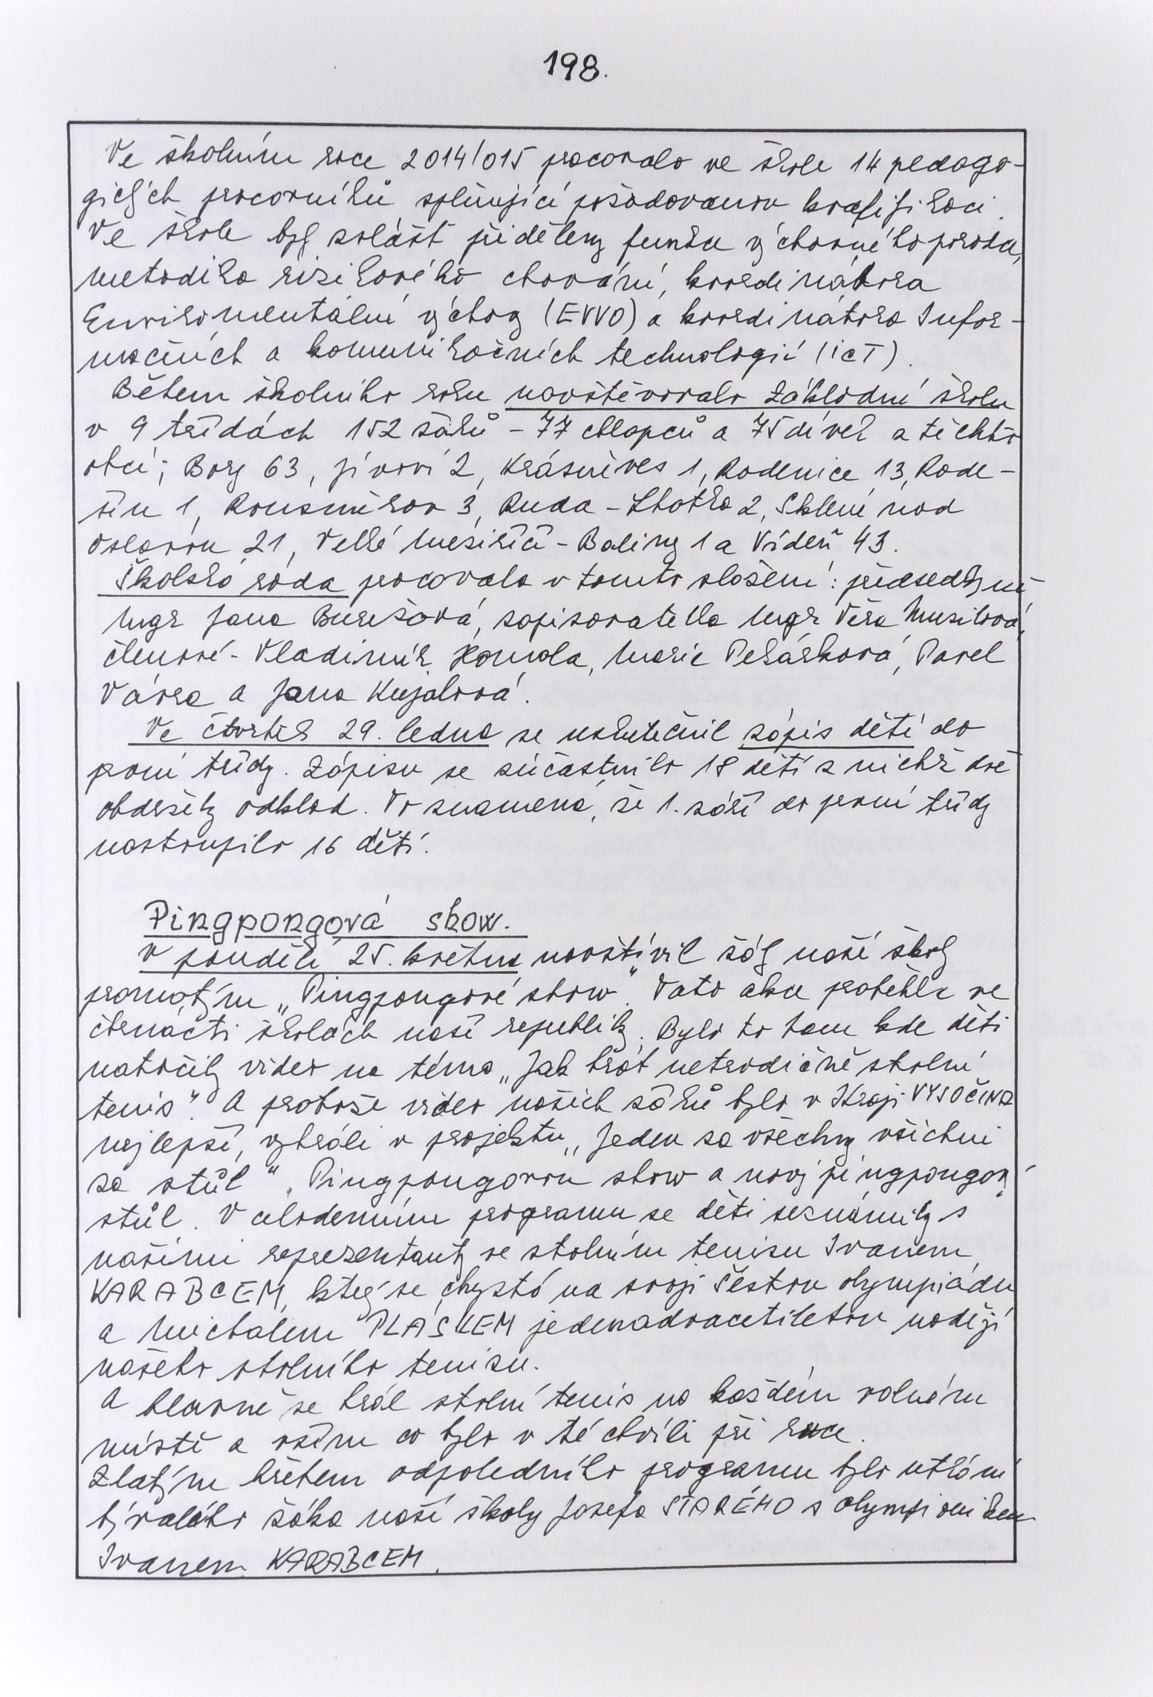 198.
Ve školním roce 2014/015 pracovalo ve škole 14 pedago-
gických pracovníků splňující požadovanou kvalifikaci.
Ve škole byly zvlášť přiděleny funkce výchovného poradce,
metodika rizikového chování, koordinátora
Enviromentální výchovy (EVVO) a koordinátora Infor-
mačních a komunikačních technologií (icT).
Během školního roku navštěvovalo Základní školu
v 9 třídách 152 žáků - 77 chlapců a 75 dívek a těchto
obcí; Bory 63, Jívoví 2, Krásněves 1, Radenice 13, Rade-
šín 1, Rousměrov 3, Ruda - Lhotka 2, Sklené nad
Oslavou 21, Velké Meziříčí - Baliny 1 a Vídeň 43.
Školská rada pracovala v tomto složení: předsedkyně
Mgr Jana Burešová, zapisovatelka Mgr Věra Musilová,
členové - Vladimír Homola, Marie Pekárková, Pavel
Vávra a Jana Kujalová.
Ve čtvrtek 29. ledna se uskutečnil zápis dětí do
první třídy. Zápisu se súčastnilo 18 dětí z nichž dvě
obdržely odklad. To znamená, že 1. září do první třídy
nastoupilo 16 dětí.
Pingpongová show.
V pondělí 25. května navštívil žáky naší školy
promotým „Pingpongové show". Tato akce proběhla ve
čtrnácti školách naší republiky. Bylo to tam kde děti
natočily video na téma „Jak hrát netradičně stolní
tenis". A protože video našich žáků bylo v Kraji VYSOČINA
nejlepší, vyhráli v projektu „Jeden za všechny všichni
za stůl", Pingpongovou show a nový pingpongový
stůl. V celodenním programu se děti seznámily s
našimi reprezentanty ve stolním tenisu Ivanem
KARABCEM, který se chystá na svoji šestou olympiádu
a Michalem PLÁSKEM jedenadvacetiletou nadějí
našeho stolního tenisu.
A hlavně se hrál stolní tenis na každém volném
místě a vším co bylo v té chvíli při ruce.
Zlatým hřebem odpoledního programu bylo utkání
bývalého žáka naší školy Josefa STARÉHO s olympionikem
Ivanem KARABCEM.